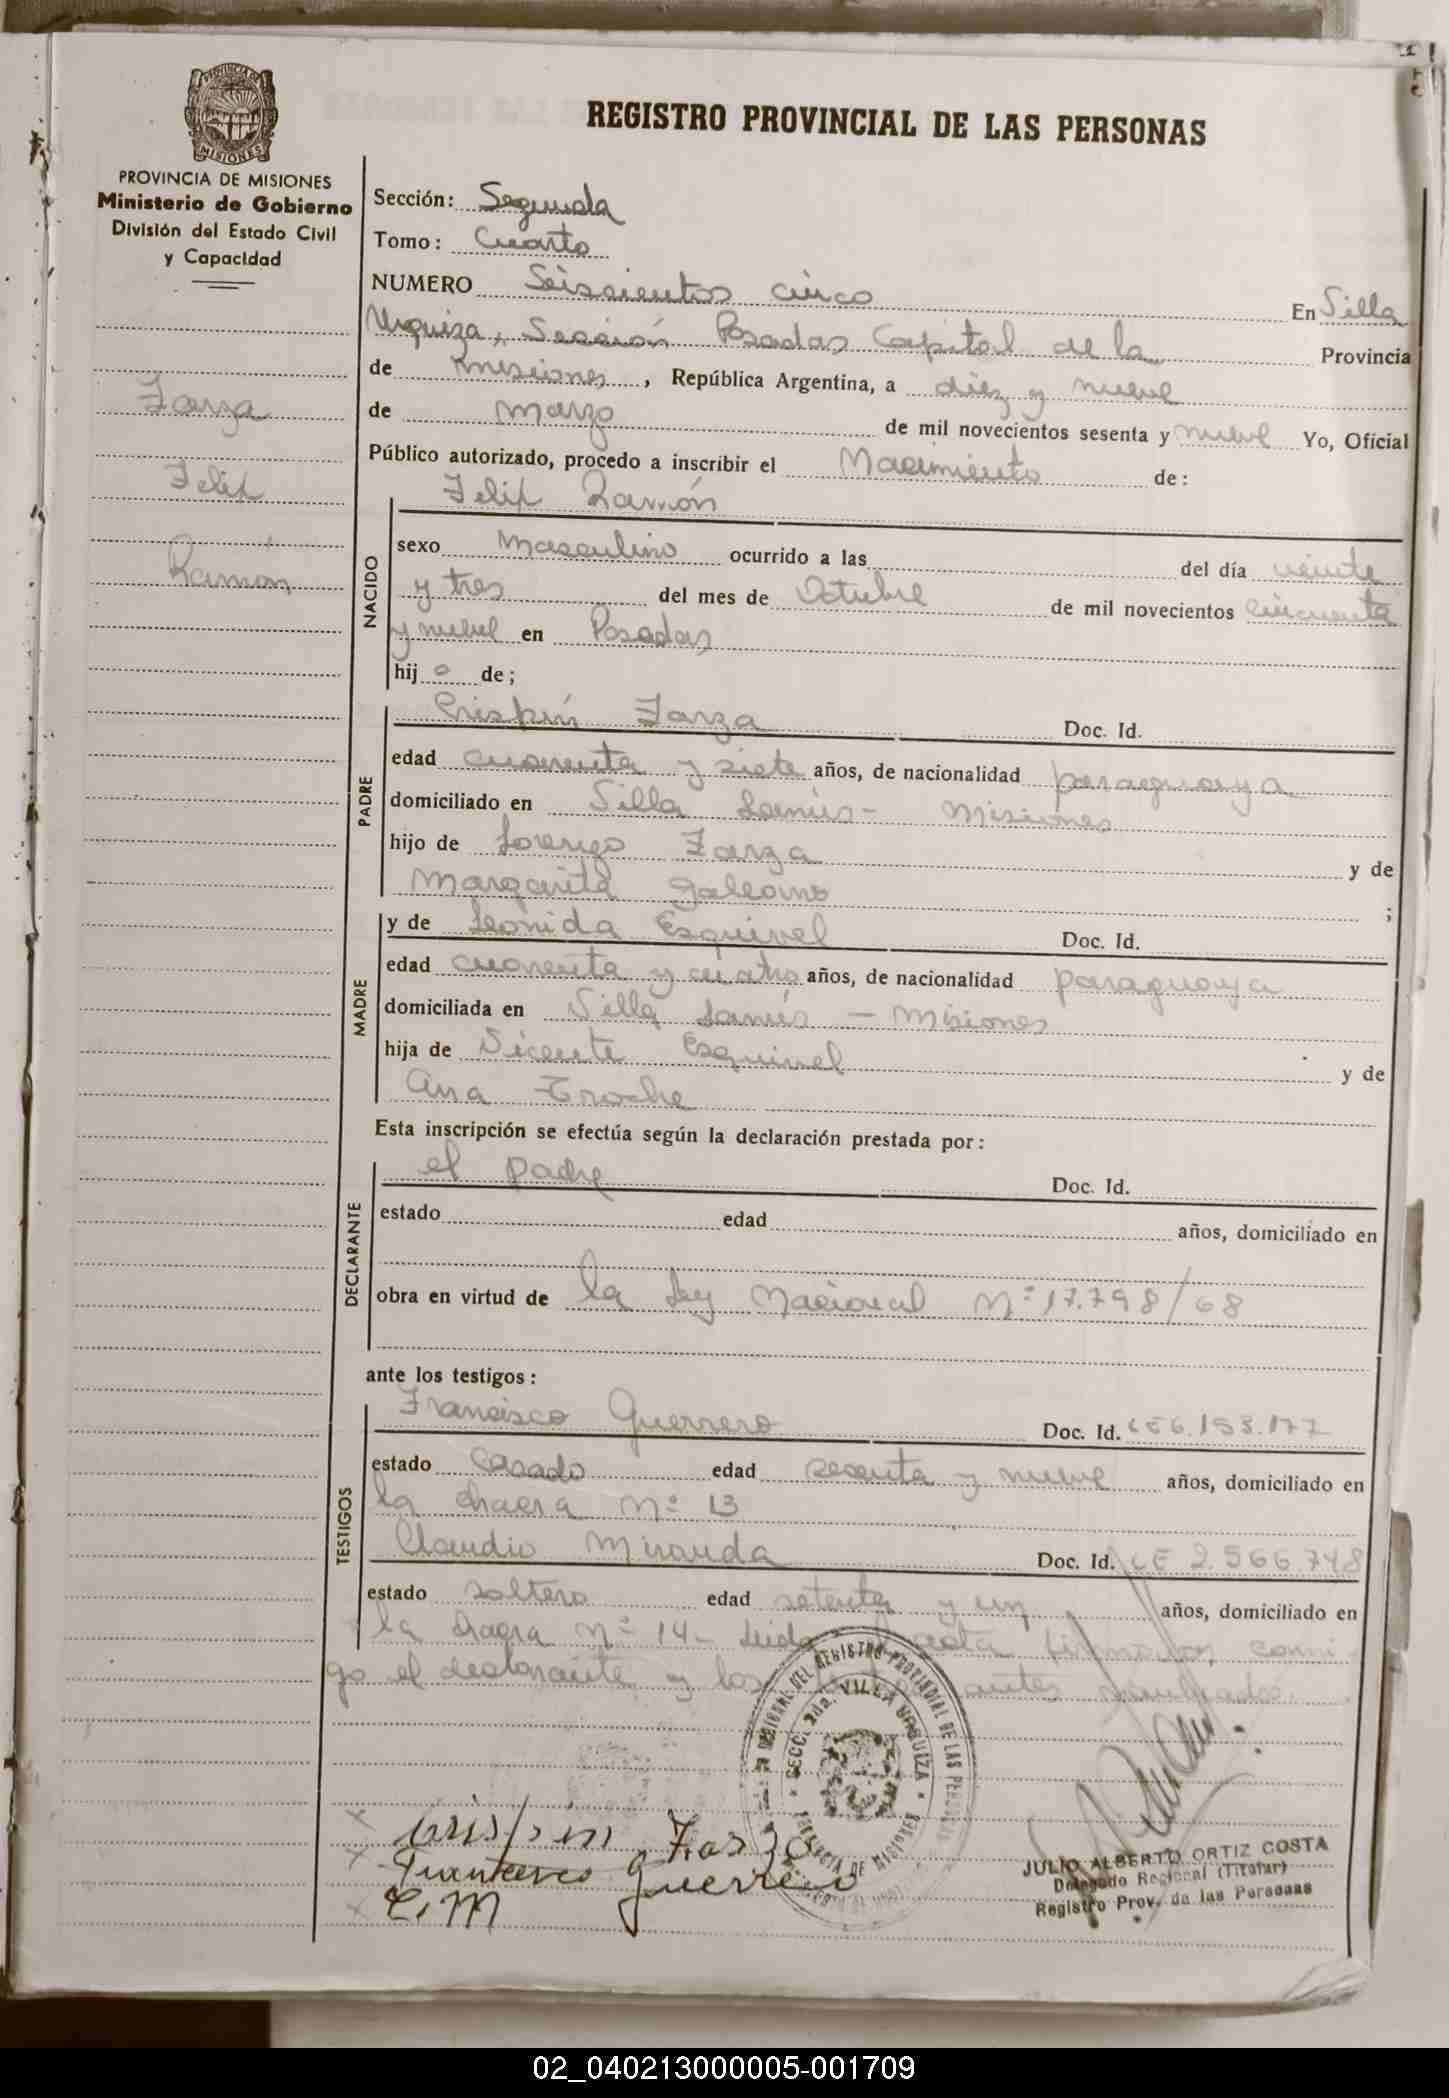 PROVINCIA DE MISIONES
Ministerio de Gobierno
División del Estado Civil
y Capacidad
Zarza
Felix
Ramón
REGISTRO PROVINCIAL DE LAS PERSONAS
Sección: Segunda
Tomo: Cuarto
NUMERO Seiscientos cinco En Villa
Urquiza, Sección Posadas Capital de la Provincia
de Misiones, República Argentina, a diez y nueve
de marzo de mil novecientos sesenta y nueve Yo, Oficial
Público autorizado, procedo a inscribir el Nacimiento de:
Felix Ramón
NACIDO
sexo Masculino ocurrido a las del día veinte
y tres del mes de Octubre de mil novecientos cincuenta
y nueve en Posadas
hijo de;
PADRE
Crispín Zarza Doc. Id.
edad cuarenta y siete años, de nacionalidad paraguaya
domiciliado en Villa Lanús - Misiones
hijo de Lorenzo Zarza y de
Margarita Galeano ;
MADRE
y de Leonida Esquivel Doc. Id.
edad cuarenta y cuatro años, de nacionalidad paraguaya
domiciliada en Villa Lanús - Misiones
hija de Vicente Esquivel y de
Ana Troche
Esta inscripción se efectúa según la declaración prestada por:
DECLARANTE
el padre Doc. Id.
estado edad años, domiciliado en
obra en virtud de la Ley Nacional Nº 17.798/68
ante los testigos:
TESTIGOS
Francisco Guerrero Doc. Id. LE 6.153.177
estado casado edad sesenta y nueve años, domiciliado en
la chacra Nº 13
Claudio Miranda Doc. Id. LE 2.566.748
estado soltero edad setenta y un años, domiciliado en
la chacra Nº 14- Leida el acta firmaron conmi-
go el declarante y los antes nombrados.
SECC. 2da. VILLA URQUIZA
PROVINCIA DE MISIONES
REGISTRO PROVINCIAL DE LAS PERSONAS
Crispin Zarza
Guerrero
C. M
JULIO ALBERTO ORTIZ COSTA
Delegado Regional (Titular)
Registro Prov. de las Personas
02_040213000005-001709